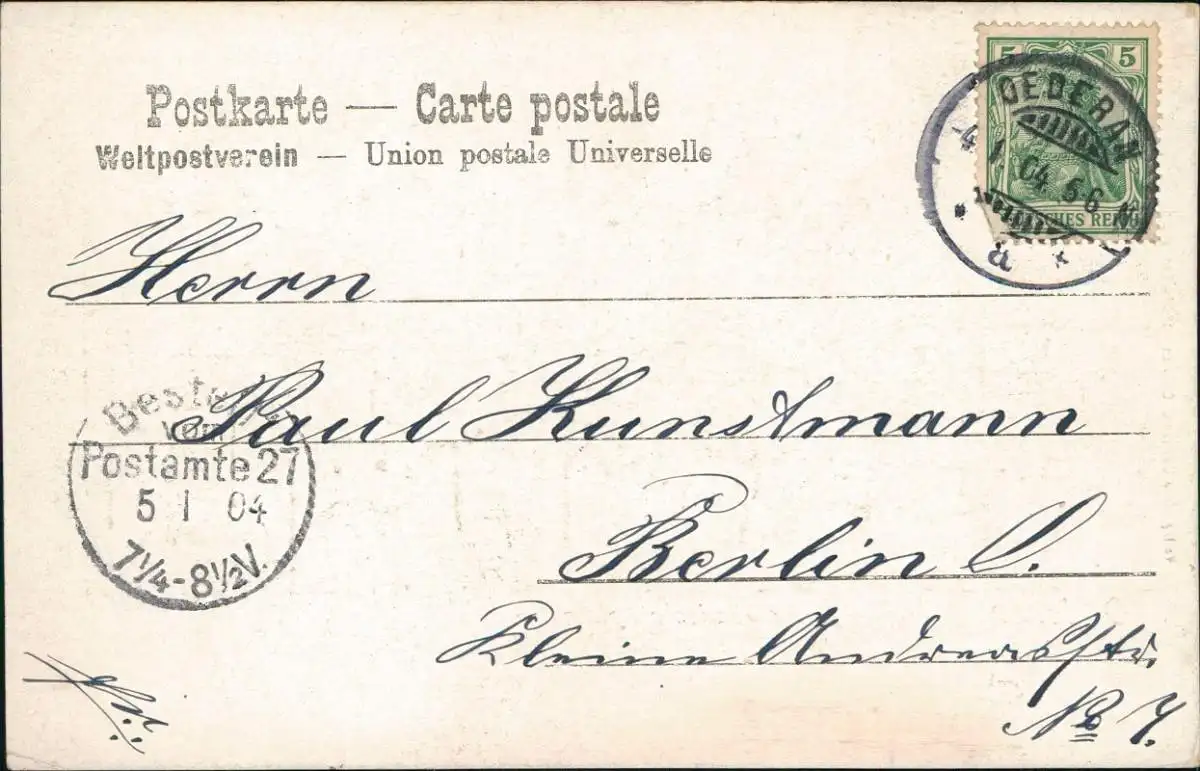 Postkarte — Carte postale
Weltpostverein — Union postale Universelle
5 5
OEDERAN
-4 1 04 5-6 N
a
DEUTSCHES REICH
Herrn
Paul Kunstmann
Berlin O.
Kleine Andreasstr.
No 7.
Bestellt
vom
Postamte 27
5 1 04
7¼-8½V.